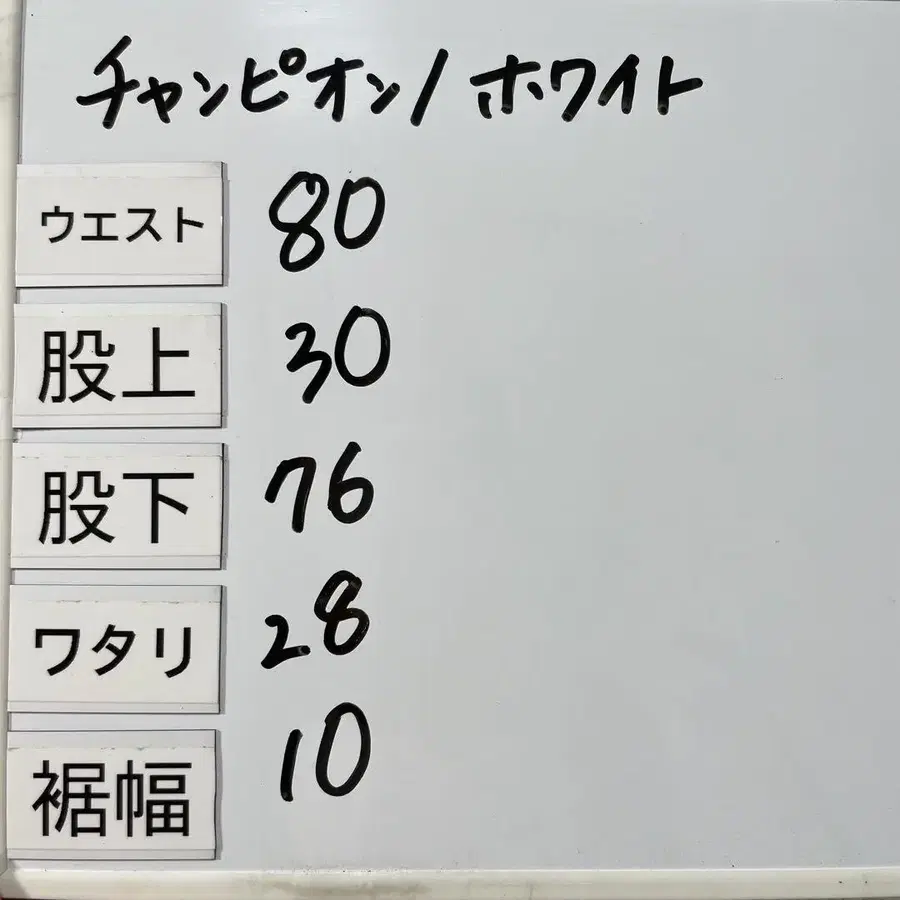 チャンピオン/ホワイト
ウエスト 80
股上 30
股下 76
ワタリ 28
裾幅 10